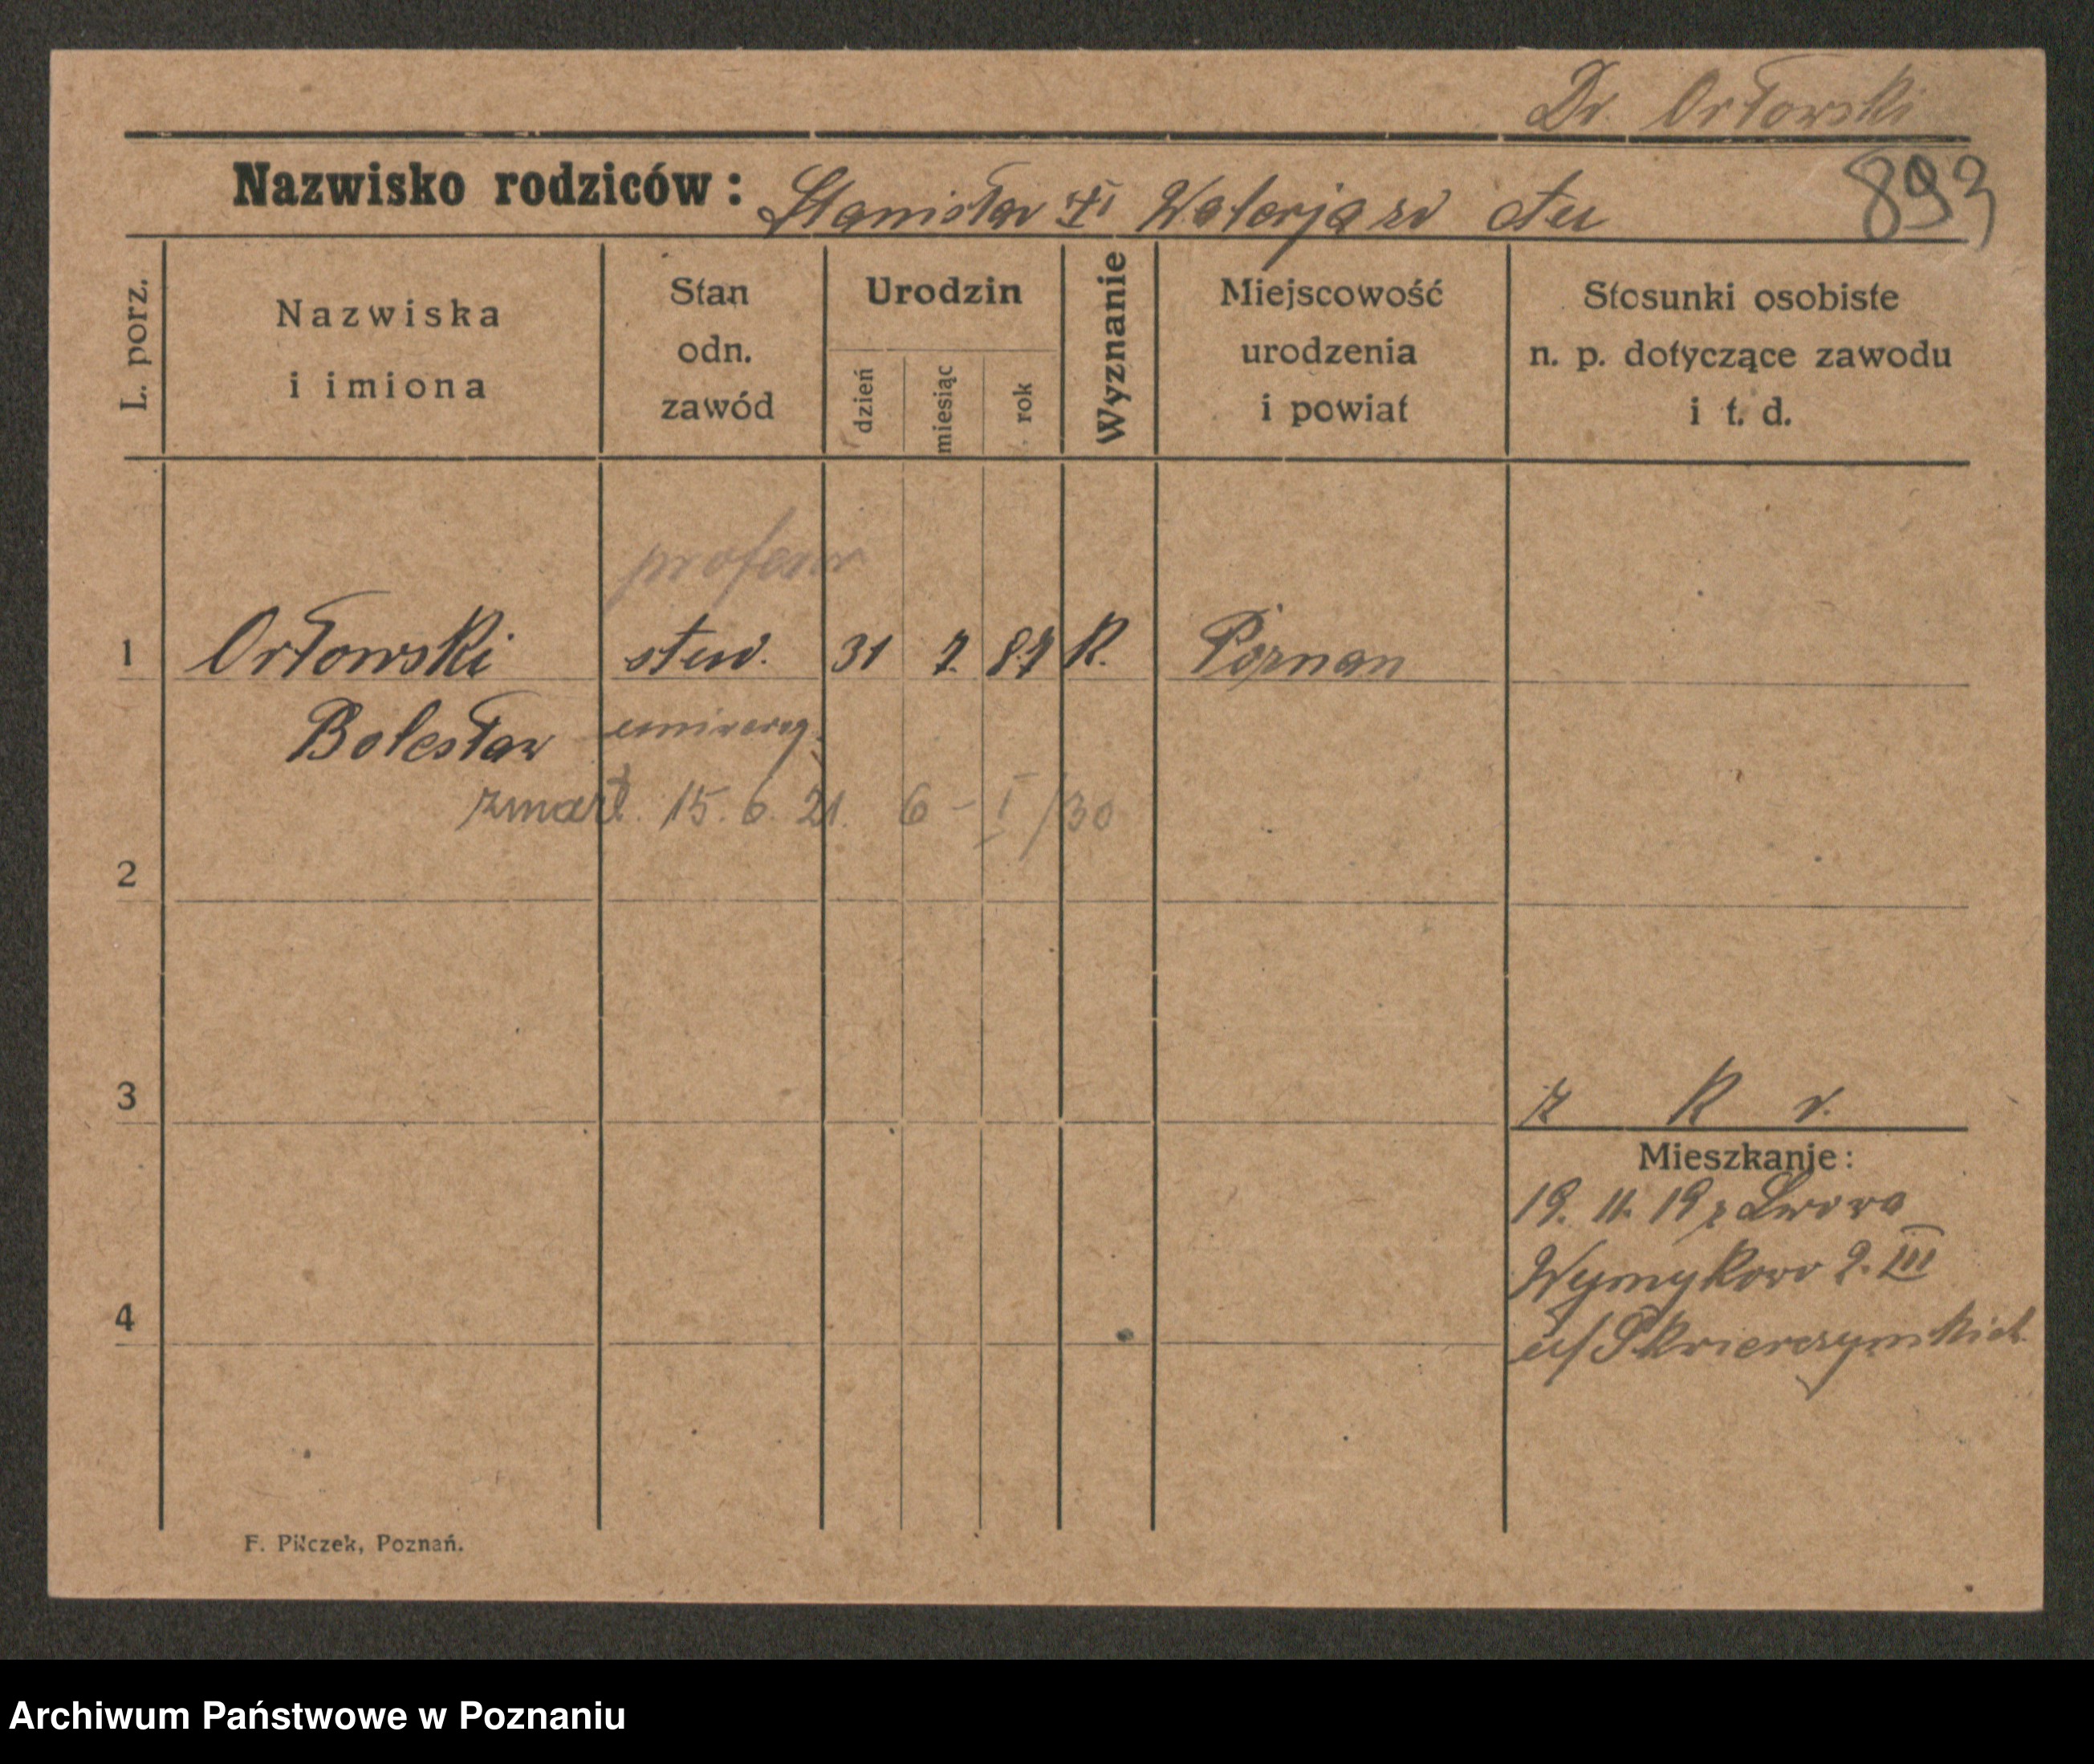 Dr. Orłowski
Nazwisko rodziców: Stanisław Walerja
893
L. porz.
Nazwiska
i imiona
Stan
odn.
zawód
Urodzin
dzień
miesiąc
rok
Wyznanie
Miejscowość
urodzenia
i powiat
Stosunki osobiste
n. p. dotyczące zawodu
i t. d.
profesor
1 Orłowski 31 7. 87 K. Poznan
Bolesław uniwersy.
zmarł. 15. 6. 21. 6 - I /30
2
3
K r.
Mieszkanie:
19. 11. 19 z Lwowa
4
F. Pilczek, Poznań.
Archiwum Państwowe w Poznaniu